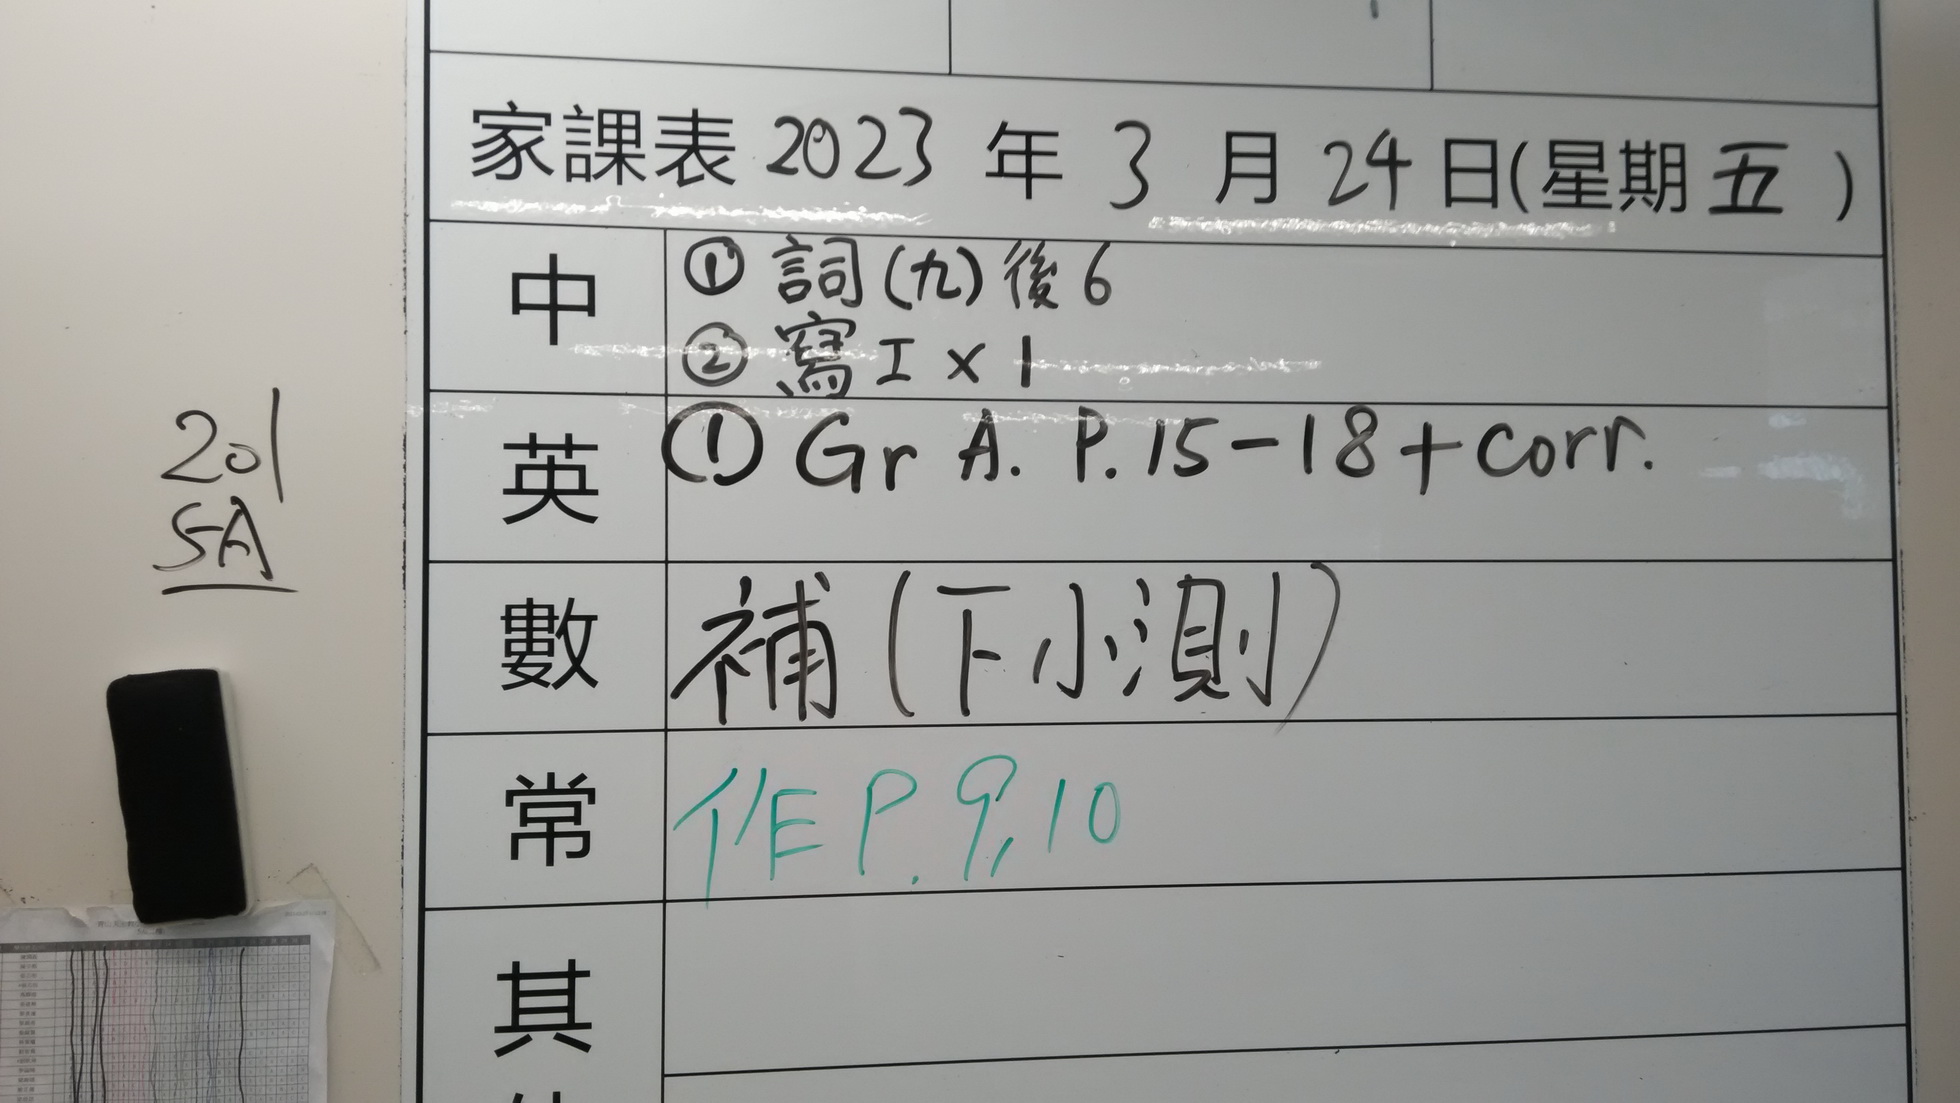 家課表 2023 年 3 月 24 日(星期五)
中
① 詞(九)後6
② 寫I×1
英
① Gr A. P.15-18+corr.
數
補(下小測)
常
作 P.9,10
其
201
5A